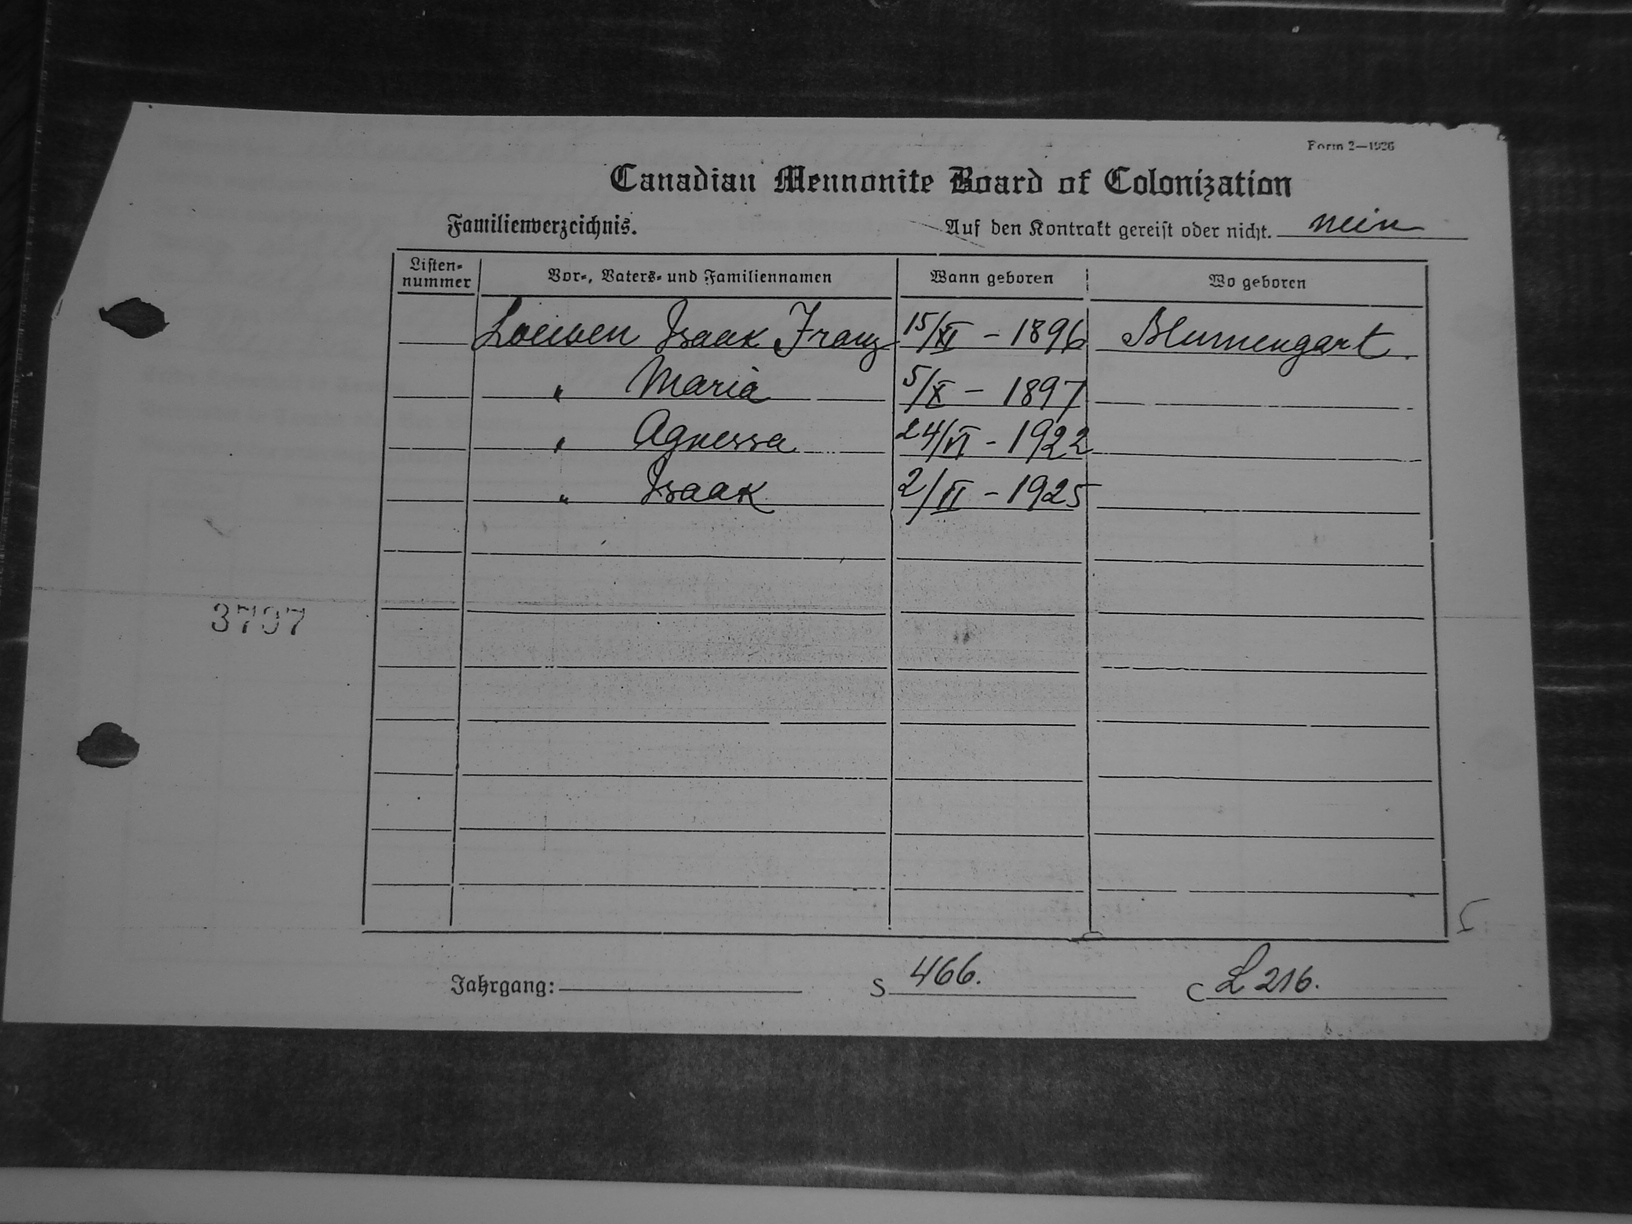 Form 2—1926
Canadian Mennonite Board of Colonization
Familienverzeichnis. Auf den Kontrakt gereist oder nicht. nein
Listen-nummer Vor-, Vaters- und Familiennamen Wann geboren Wo geboren
Loewen Isaak Franz 15/XI - 1896 Blumengart.
" Maria 5/X - 1897
" Agnessa 24/VI - 1922
" Isaak 2/II - 1925
3797
Jahrgang: S 466. C L 216.